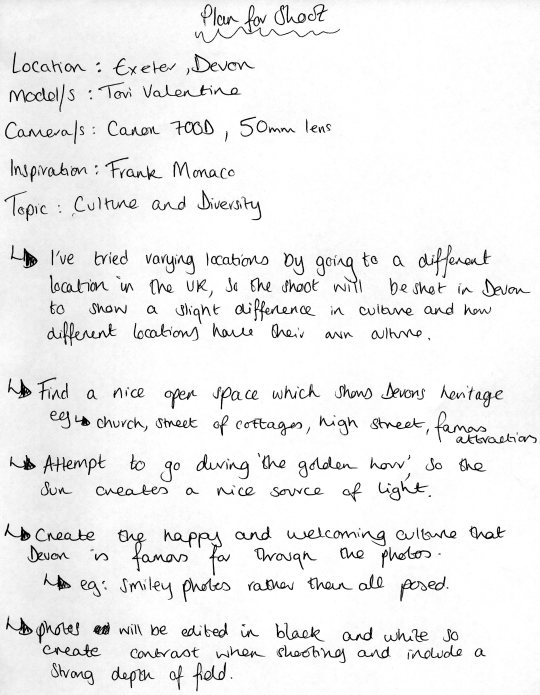 Plan for Shoot
Location : Exeter, Devon
Model/s : Tori Valentine
Camera/s : Canon 700D, 50mm lens
Inspiration : Frank Monaco
Topic : Culture and Diversity
↳ I've tried varying locations by going to a different
location in the UK, so the shoot will be shot in Devon
to show a slight difference in culture and how
different locations have their own culture.
↳ Find a nice open space which shows Devons heritage
eg ↳ church, street of cottages, high street, famous
attractions
↳ Attempt to go during 'the golden hour', so the
sun creates a nice source of light.
↳ Create the happy and welcoming culture that
Devon is famous for through the photos.
↳ eg: smiley photos rather than all posed.
↳ photos will be edited in black and white so
create contrast when shooting and include a
strong depth of field.